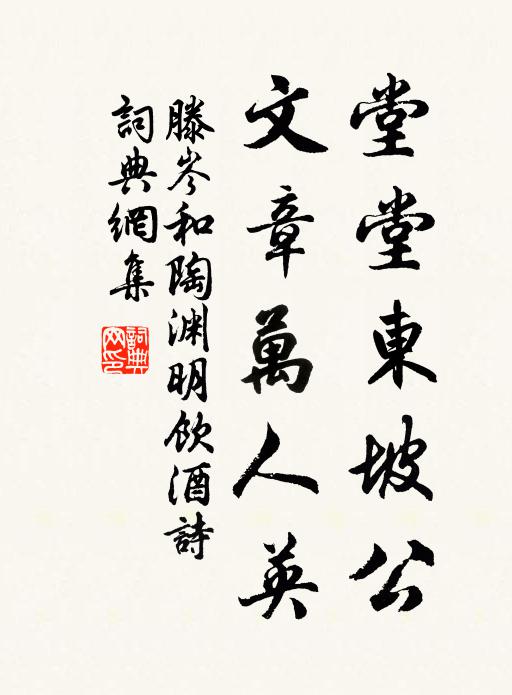 堂堂東坡公
文章萬人英
滕岑和陶淵明飲酒詩
詞典網集
詞典
网印